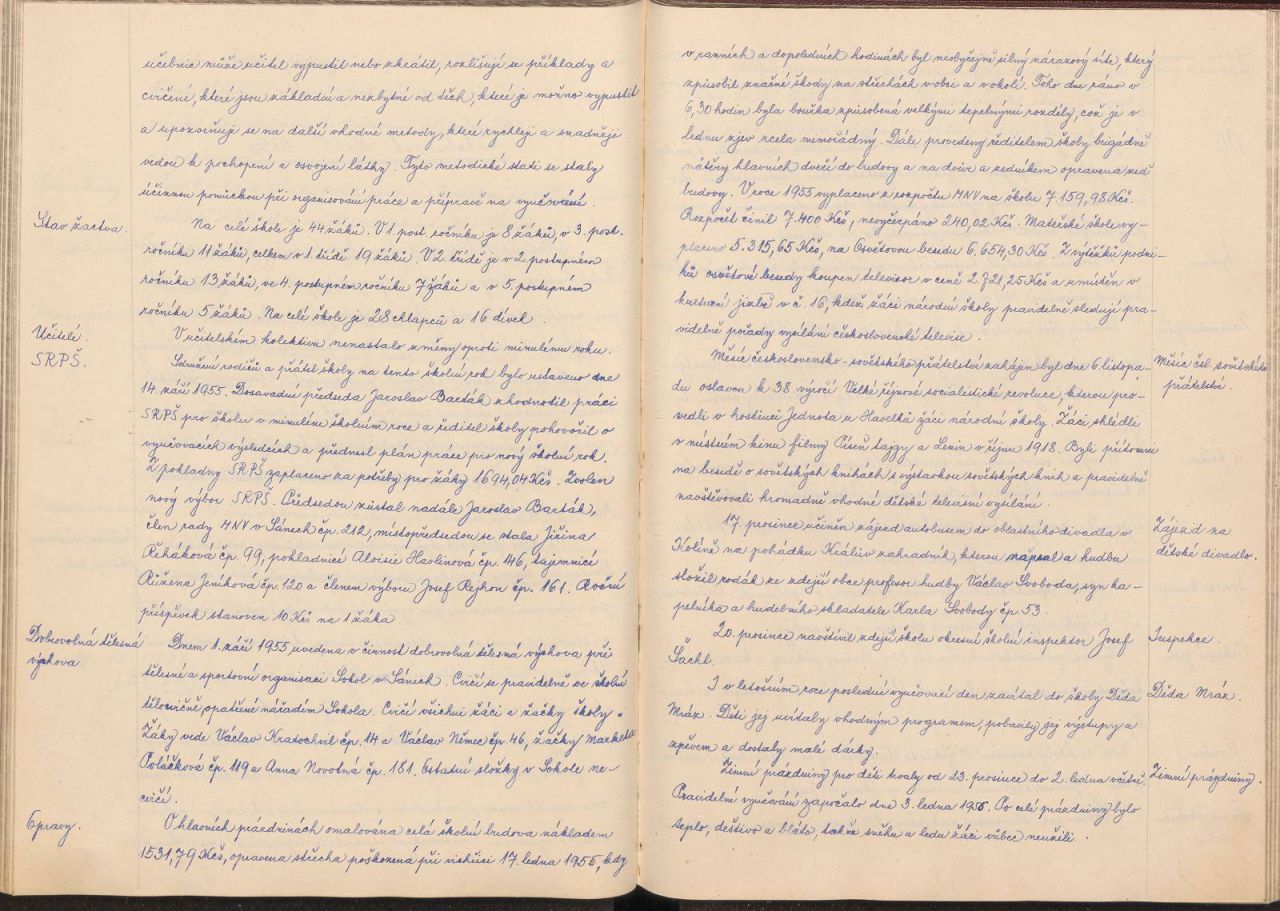 učebnic může učitel vypustit nebo zkrátit, rozlišují se příklady a
cvičení, které jsou základní a nezbytné od těch, které je možno vypustit
a upozorňuje se na další vhodné metody, které rychleji a snadněji
vedou k pochopení a osvojení látky. Tyto metodické stati se staly
účinnou pomůckou při organisování práce a přípravě na vyučování.
Stav žactva.
Na celé škole je 44 žáků. V 1 post. ročníku je 8 žáků, v 3. post.
ročníku 11 žáků, celkem v 1 třídě 19 žáků. V 2. třídě je v 2. postupném
ročníku 13 žáků, ve 4. postupném ročníku 7 žáků a v 5. postupném
ročníku 5 žáků. Na celé škole je 28 chlapců a 16 dívek.
Učitelé.
V učitelském kolektivu nenastalo změny oproti minulému roku.
SRPŠ.
Sdružení rodičů a přátel školy na tento školní rok bylo ustaveno dne
14. září 1955. Dosavadní předseda Jaroslav Barták zhodnotil práci
SRPŠ pro školu v minulém školním roce a ředitel školy pohovořil o
vyučovacích výsledcích a přednesl plán práce pro nový školní rok.
Z pokladny SRPŠ zaplaceno za potřeby pro žáky 1694,04 Kčs. Zvolen
nový výbor SRPŠ. Předsedou zůstal nadále Jaroslav Barták,
člen rady MNV v Sánech čp. 212, místopředsedou se stala Jiřina
Řeháková čp. 99, pokladnicí Aloisie Havlinová čp. 146, tajemnicí
Růžena Jeníková čp. 120 a členem výboru Josef Rejhon čp. 161. Roční
příspěvek stanoven 10 Kčs na 1 žáka.
Dobrovolná tělesná
výchova.
Dnem 1. září 1955 uvedena v činnost dobrovolná tělesná výchova při
tělesné a sportovní organisaci Sokol v Sánech. Cvičí se pravidelně ve školní
tělocvičně, opatřené nářadím Sokola. Cvičí všichni žáci a žačky školy.
Žáky vede Václav Kratochvíl čp. 14 a Václav Němec čp. 46, žačky Markéta
Poláčková čp. 119 a Anna Novotná čp. 181. Ostatní složky v Sokole ne-
cvičí.
Opravy.
O hlavních prázdninách omalována celá školní budova nákladem
1531,79 Kčs, opravena střecha poškozená při vichřici 17. ledna 1955, kdy
v ranních a dopoledních hodinách byl neobyčejně silný nárazový vítr, který
způsobil značné škody na střechách v obci a v okolí. Toho dne ráno v
6,30 hodin byla bouřka způsobená velkými tepelnými rozdíly, což je v
lednu zjev zcela mimořádný. Dále provedeny ředitelem školy brigádně
nátěry hlavních dveří do budovy a na dvoře a zedníkem opravena zeď
budovy. V roce 1955 vyplaceno z rozpočtu MNV na školu 7.159,98 Kčs.
Rozpočet činil 7.400 Kčs, nevyčerpáno 240,02 Kčs. Mateřské škole vy-
placeno 5.315,65 Kčs, na Osvětovou besedu 6.654,30 Kčs. Z výtěžků podni-
ků osvětové besedy koupen televisor v ceně 2721,25 Kčs a umístěn v
kulturní jizbě v č. 16, kdež žáci národní školy pravidelně sledují pra-
videlné pořady vysílání československé televise.
Měsíc čsl. sovětského
přátelství.
Měsíc československo-sovětského přátelství zahájen byl dne 6. listopa-
du oslavou k 38. výročí Velké říjnové socialistické revoluce, kterou pro-
vedli v hostinci Jednota u Havelků žáci národní školy. Žáci shlédli
v místním kinu filmy Píseň tajgy a Lenin v říjnu 1918. Byli přítomni
na besedě o sovětských knihách s výstavkou sovětských knih a pravidelně
navštěvovali hromadně vhodné dětské televisní vysílání.
Zájezd na
dětské divadlo.
17. prosince učiněn zájezd autobusem do oblastního divadla v
Kolíně na pohádku Králův zahradník, kterou napsal a hudbu
složil rodák ze zdejší obce profesor hudby Václav Svoboda, syn ka-
pelníka a hudebního skladatele Karla Svobody čp. 53.
Inspekce.
20. prosince navštívil zdejší školu okresní školní inspektor Josef
Šachl.
Děda Mráz.
I v letošním roce poslední vyučovací den zavítal do školy Děda
Mráz. Děti jej uvítaly vhodným programem, pobavily jej výstupy a
zpěvem a dostaly malé dárky.
Zimní prázdniny.
Zimní prázdniny pro děti trvaly od 23. prosince do 2. ledna včetně.
Pravidelné vyučování započalo dne 3. ledna 1956. Po celé prázdniny bylo
teplo, deštivo a bláto, takže sněhu a ledu žáci vůbec neužili.